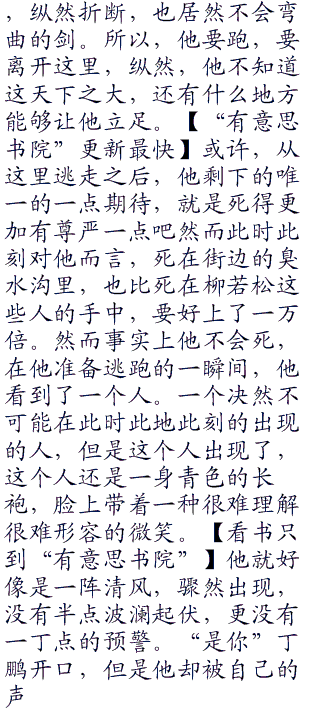 ，纵然折断，也居然不会弯
曲的剑。所以，他要跑，要
离开这里，纵然，他不知道
这天下之大，还有什么地方
能够让他立足。【“有意思
书院”更新最快】或许，从
这里逃走之后，他剩下的唯
一的一点期待，就是死得更
加有尊严一点吧然而此时此
刻对他而言，死在街边的臭
水沟里，也比死在柳若松这
些人的手中，要好上了一万
倍。然而事实上他不会死，
在他准备逃跑的一瞬间，他
看到了一个人。一个决然不
可能在此时此地此刻的出现
的人，但是这个人出现了，
这个人还是一身青色的长
袍，脸上带着一种很难理解
很难形容的微笑。【看书只
到“有意思书院”】他就好
像是一阵清风，骤然出现，
没有半点波澜起伏，更没有
一丁点的预警。“是你”丁
鹏开口，但是他却被自己的
声